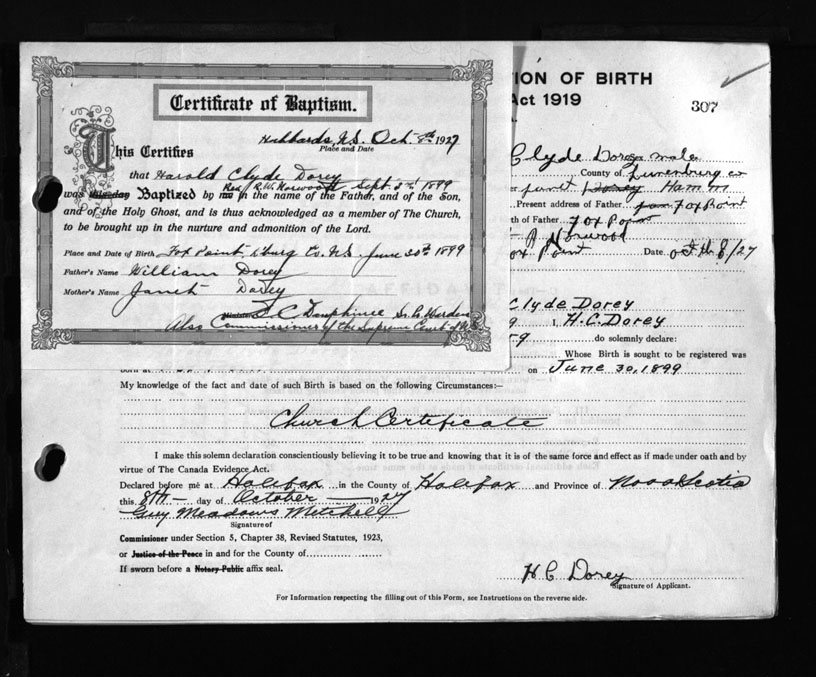 Certificate of Baptism.
Hubbards, N.S. Oct. 8th 1927
Place and Date
This Certifies
that Harold Clyde Dorey
was this day Baptized by me Rev. R.W. Norwood Sept. 3rd 1899 in the name of the Father, and of the Son,
and of the Holy Ghost, and is thus acknowledged as a member of The Church,
to be brought up in the nurture and admonition of the Lord.
Place and Date of Birth Fox Point, Lburg Co. N.S. June 30th 1899
Father's Name William Dorey
Mother's Name Janet Dorey
C Dauphinee Sr. C. Warden
Also Commissioner of the Supreme Court of N.S.
ION OF BIRTH
Act 1919
307
Clyde Dorey male
County of Lunenburg co
Janet Dorey Hamm
Present address of Father Fox Point
th of Father Fox Point
Norwood
ox Point Date Oct 8/27
AFFIDAVIT
Clyde Dorey
9 I, H.C. Dorey
do solemnly declare:
Whose Birth is sought to be registered was
born at on June 30, 1899
My knowledge of the fact and date of such Birth is based on the following Circumstances:—
Church Certificate
I make this solemn declaration conscientiously believing it to be true and knowing that it is of the same force and effect as if made under oath and by
virtue of The Canada Evidence Act.
Declared before me at Halifax in the County of Halifax and Province of Nova Scotia
this 8th day of October 1927
Guy Meadows Mitchell
Signature of
Commissioner under Section 5, Chapter 38, Revised Statutes, 1923,
or Justice of the Peace in and for the County of
If sworn before a Notary Public affix seal.
H C Dorey
Signature of Applicant.
For Information respecting the filling out of this Form, see Instructions on the reverse side.